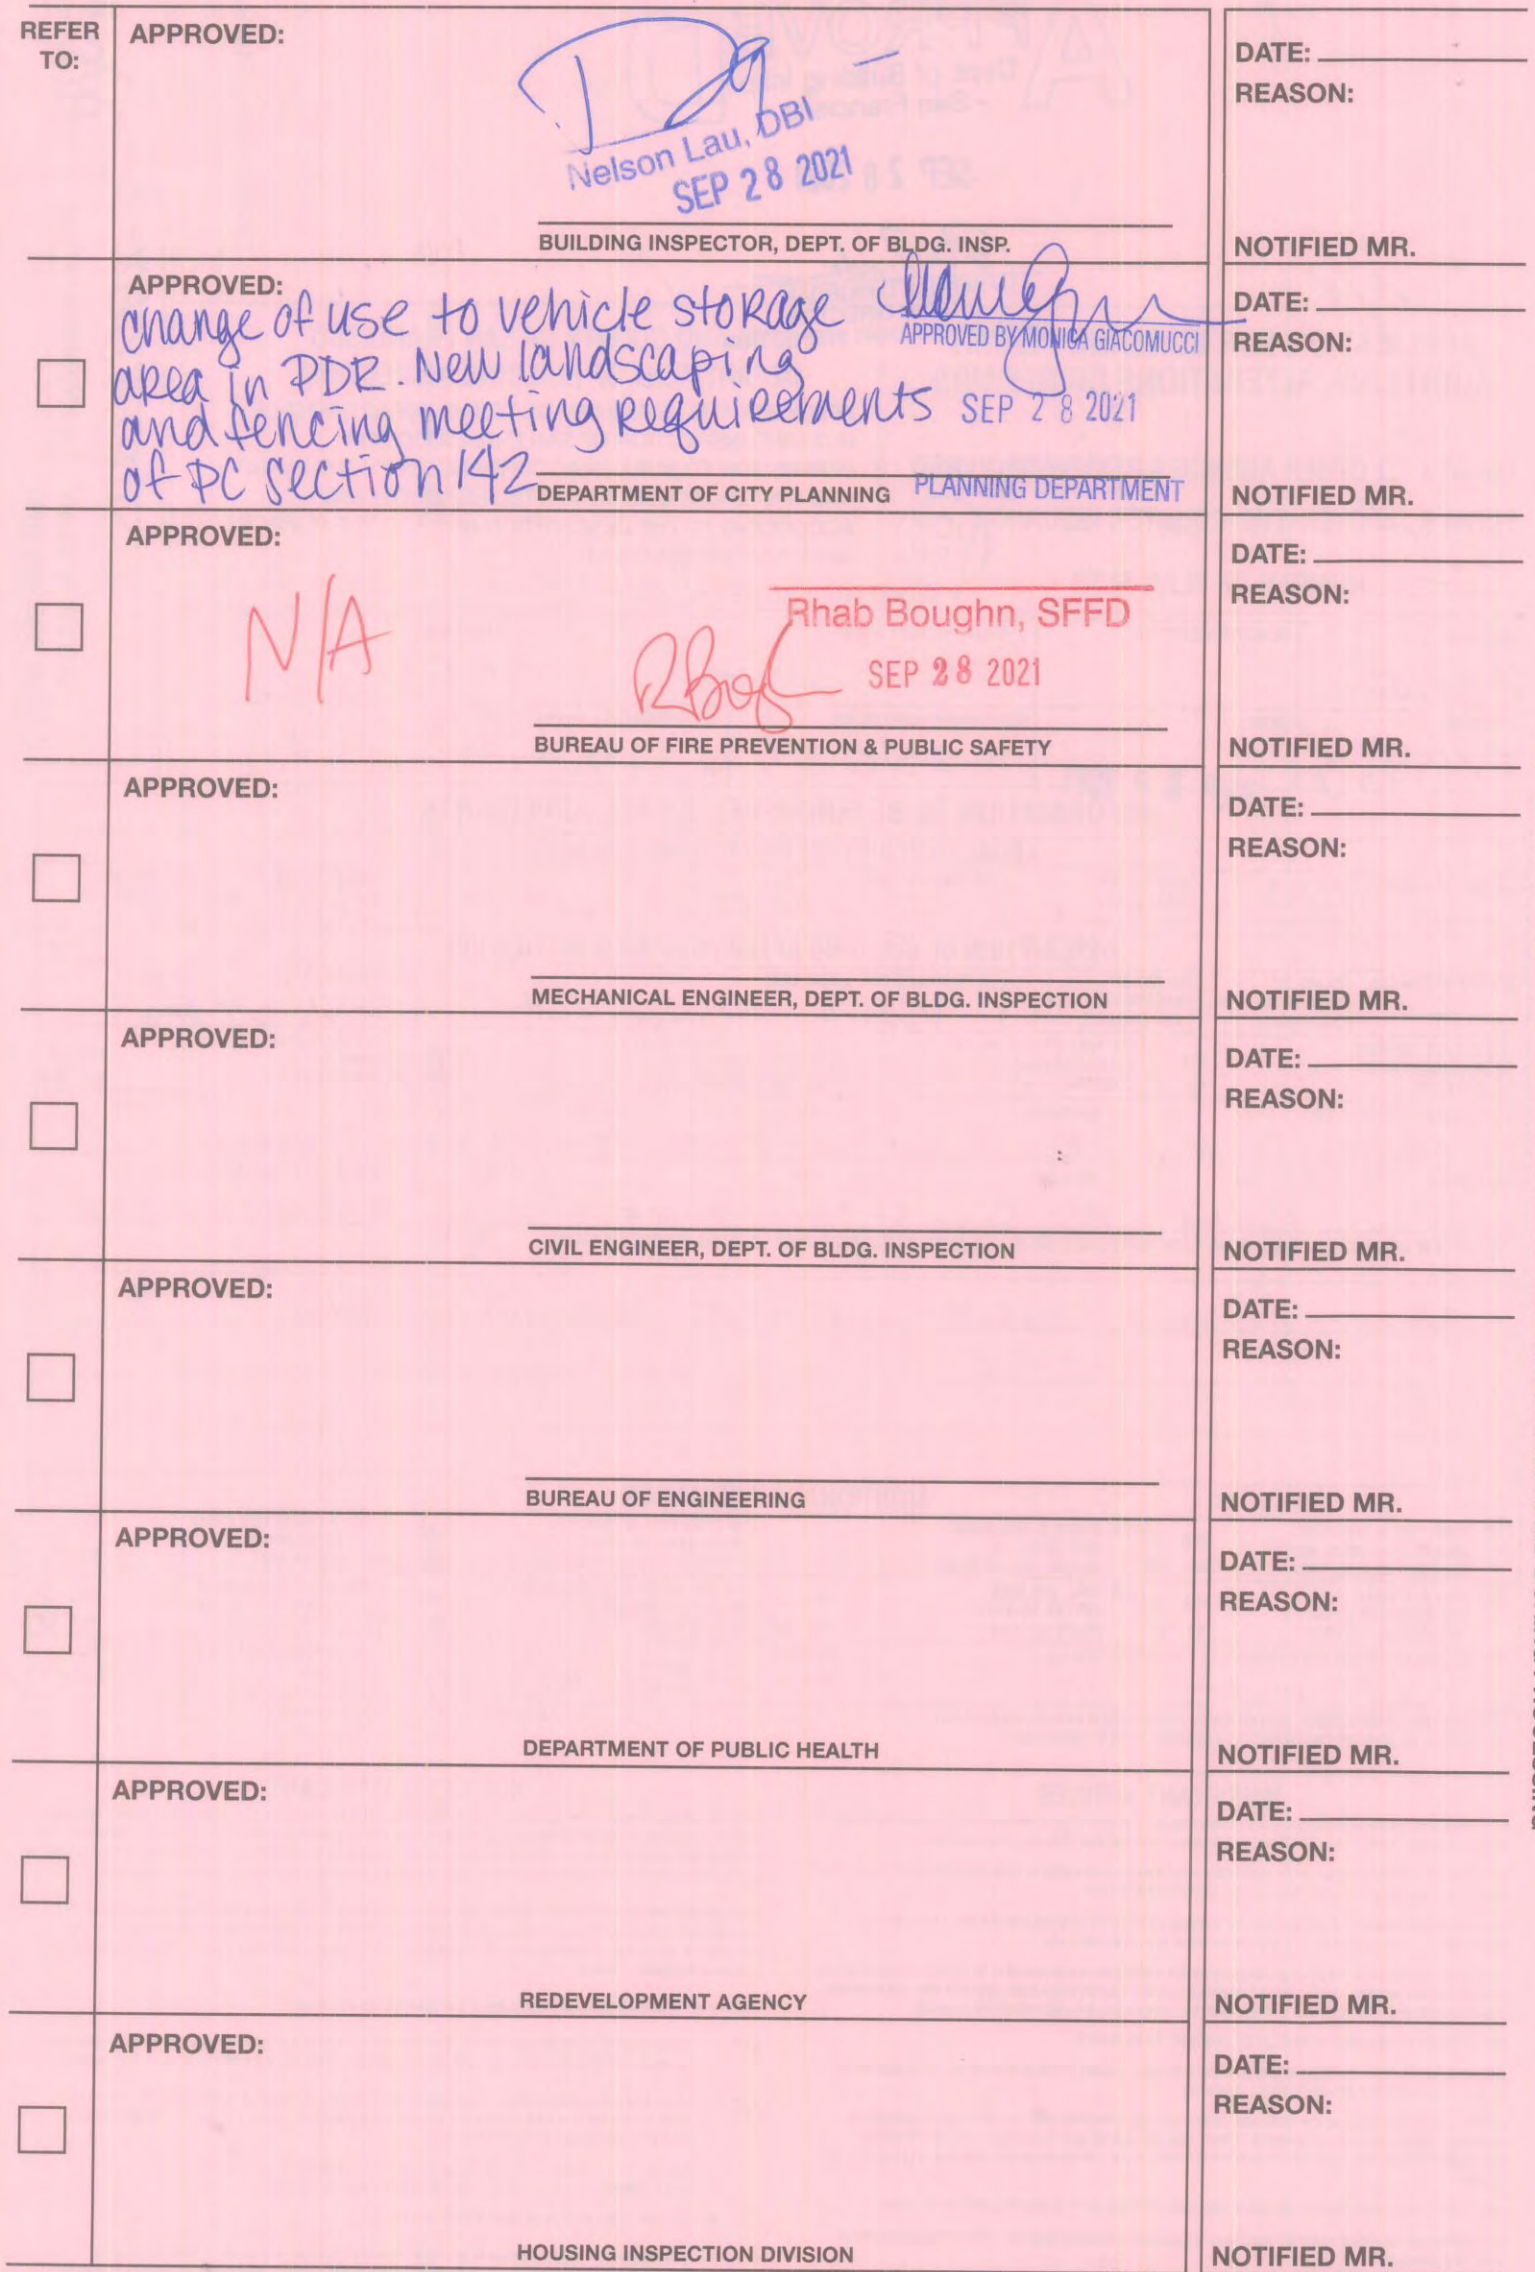 REFER
TO:
APPROVED:
DATE:
REASON:
Nelson Lau, DBI
SEP 28 2021
BUILDING INSPECTOR, DEPT. OF BLDG. INSP.
NOTIFIED MR.
APPROVED:
change of use to vehicle storage
area in PDR. New landscaping
and fencing meeting requirements
of PC Section 142
APPROVED BY MONICA GIACOMUCCI
SEP 28 2021
DEPARTMENT OF CITY PLANNING
PLANNING DEPARTMENT
DATE:
REASON:
NOTIFIED MR.
APPROVED:
N/A
Rhab Boughn, SFFD
SEP 28 2021
BUREAU OF FIRE PREVENTION & PUBLIC SAFETY
DATE:
REASON:
NOTIFIED MR.
APPROVED:
MECHANICAL ENGINEER, DEPT. OF BLDG. INSPECTION
DATE:
REASON:
NOTIFIED MR.
APPROVED:
CIVIL ENGINEER, DEPT. OF BLDG. INSPECTION
DATE:
REASON:
NOTIFIED MR.
APPROVED:
BUREAU OF ENGINEERING
DATE:
REASON:
NOTIFIED MR.
APPROVED:
DEPARTMENT OF PUBLIC HEALTH
DATE:
REASON:
NOTIFIED MR.
APPROVED:
REDEVELOPMENT AGENCY
DATE:
REASON:
NOTIFIED MR.
APPROVED:
HOUSING INSPECTION DIVISION
DATE:
REASON:
NOTIFIED MR.